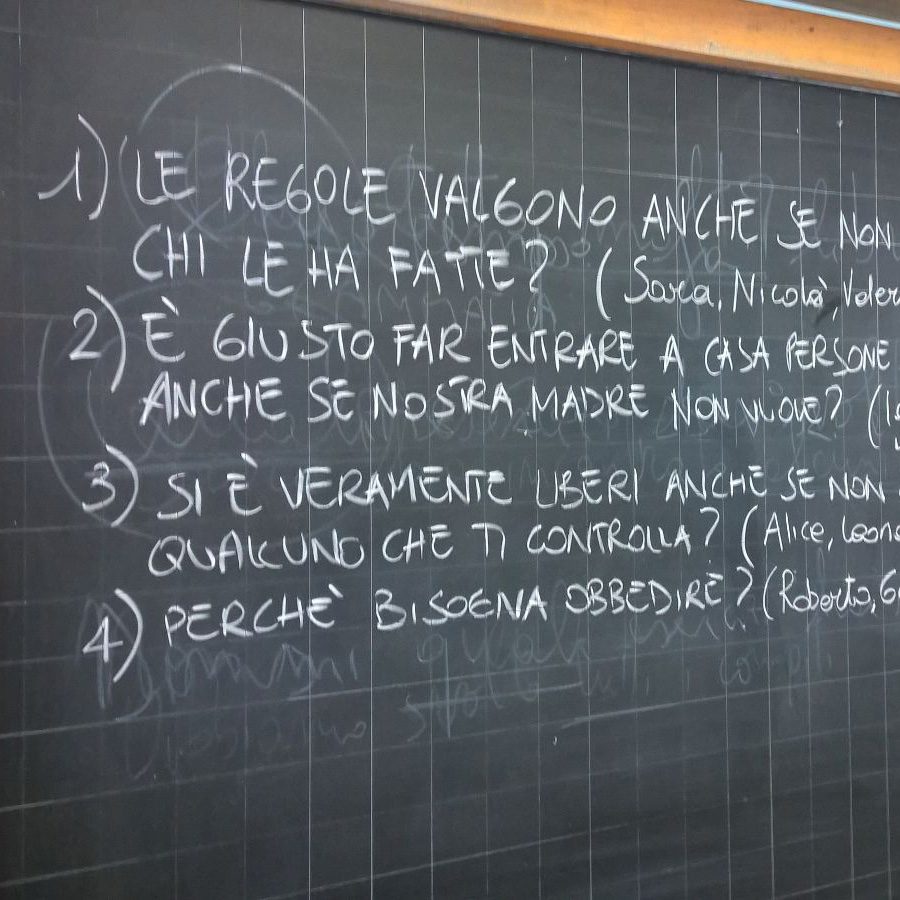 1) LE REGOLE VALGONO ANCHE SE NON
CHI LE HA FATTE? (Sara, Nicolò,
2) È GIUSTO FAR ENTRARE A CASA PERSONE
ANCHE SE NOSTRA MADRE NON VUOLE?
3) SI È VERAMENTE LIBERI ANCHE SE NON
QUALCUNO CHE TI CONTROLLA? (Alice,
4) PERCHÈ BISOGNA OBBEDIRE? (Roberto,